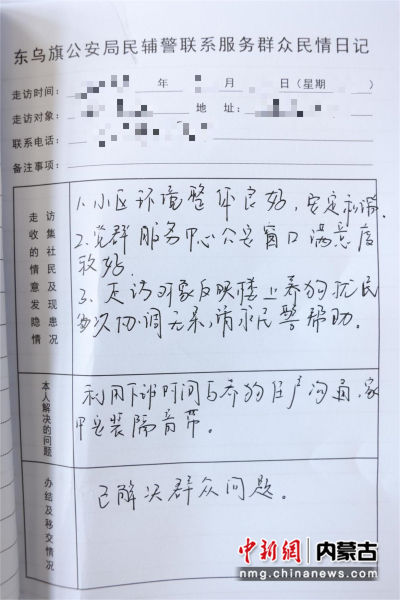 东乌旗公安局民辅警联系服务群众民情日记
走访时间： 年 月 日（星期 ）
走访对象： 地 址：
联系电话：
备注事项：
走访收集的社情民意及发现隐患情况
1.小区环境整体良好，安定和谐.
2.党群服务中心公安窗口满意度
较好.
3.走访对象反映楼上养狗扰民
多次协调无果,请求民警帮助。
本人解决的问题
利用下班时间与养狗住户沟通,家
中安装隔音带。
办结及移交情况
已解决群众问题。
中新網 内蒙古
nmg.chinanews.com